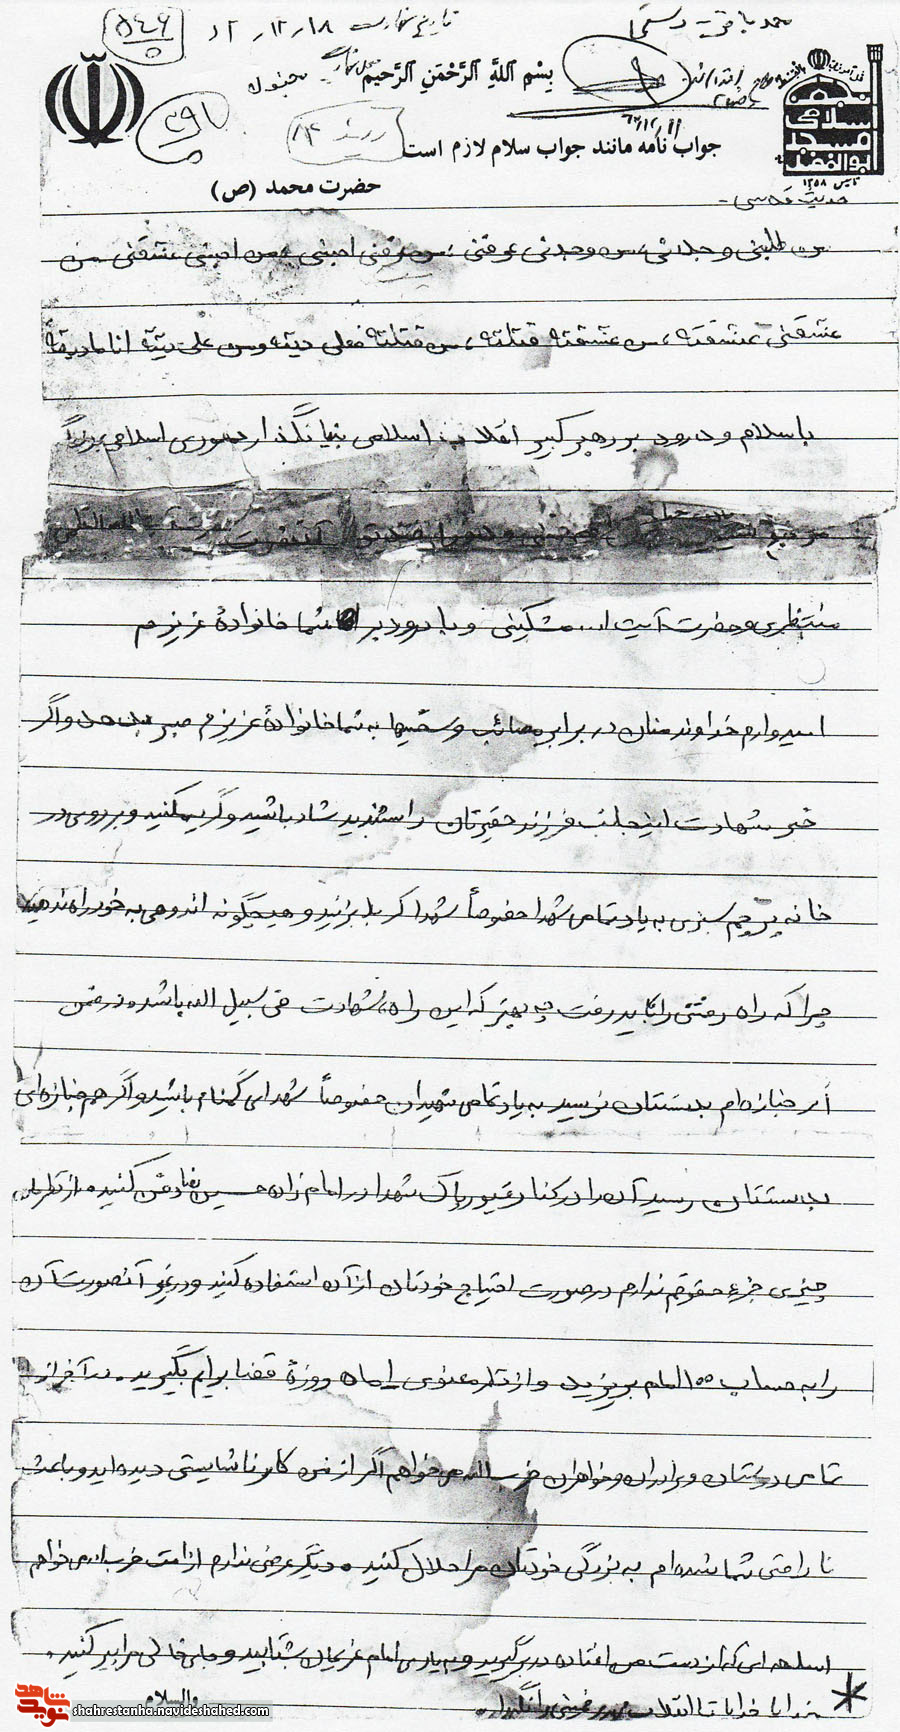 محمد باقر رستمی
تاریخ شهادت ۱۲/۱۲/۱۸
۵۴۶
بِسْمِ اللَّهِ الرَّحْمَنِ الرَّحِيمِ
محل شهادت مجنون
جواب نامه مانند جواب سلام لازم است
حضرت محمد (ص)
انجمن اسلامی مسجد ابوالفضل
تاسیس ۱۳۵۸
حدیث قدسی -
من طلبنی وجدنی، من وجدنی عرفنی، من عرفنی احبنی، من احبنی عشقنی من
عشقنی عشقته، من عشقته قتلته، من قتلته فعلی دیته ومن علی دیته انا دیته
باسلام و درود بر رهبر کبیر انقلاب اسلامی بنیانگذار جمهوری اسلامی
منتظری و حضرت آیت ا... مشکینی و با درود بر شما خانوادهٔ عزیزم
امیدوارم خداوند منان در برابر مصائب و سختیها به شما خانوادهٔ عزیزم صبر بدهد و اگر
خبر شهادت اینجانب فرزند حقیرتان را شنیدید شاد باشید و گریه مکنید و بر روی در
خانه پرچم سبزی به یاد تمامی شهدا خصوصاً شهدا کربلا بزنید و هیچگونه اندوهی به خود راه ندهید
چرا که راه رفتنی را باید رفت چه بهتر که این راه، شهادت فی سبیل الله باشد. در ضمن
اگر جنازه‌ام بدستتان نرسید به یاد تمامی شهیدان خصوصاً شهدای گمنام باشید و اگر هم جنازه‌ای
بدستتان رسید آن را در کنار قبور پاک شهدا در امام زاده حسین دفن کنید. از نظر مال
چیزی جزء حقوقم ندارم در صورت احتیاج خودتان از آن استفاده کنید و در غیر آنصورت آن
را به حساب ۱۰۰ امام بریزید و از نظر معنوی یکماه روزهٔ قضا برایم بگیرید. در آخر از
تمامی دوستان و برادران و خواهران حزب الله می‌خواهم اگر از من کار ناشایستی دیده‌اید و باعث
ناراحتی شما شده‌ام به بزرگی خودتان مرا حلال کنید. دیگر عرضی ندارم از امت حزب ا... می‌خواهم
اسلحه‌ای که از دست من افتاده در برگیرید و به یاری امام عزیزمان بشتابید و جای خالی مرا پر کنید.
خدایا خدایا تا انقلاب مهدی خمینی را نگهدار. والسلام
نوید شاهد
shahrestanha.navideshahed.com